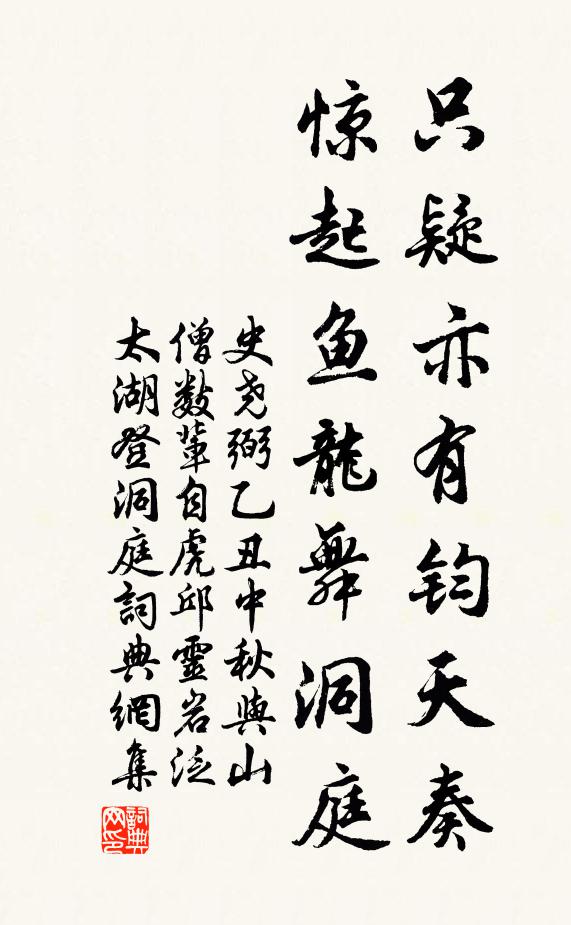 只疑亦有钧天奏
惊起鱼龍舞洞庭
史尧弼乙丑中秋與山
僧数輩自虎邱靈岩泛
太湖登洞庭詞典網集
詞典
网印